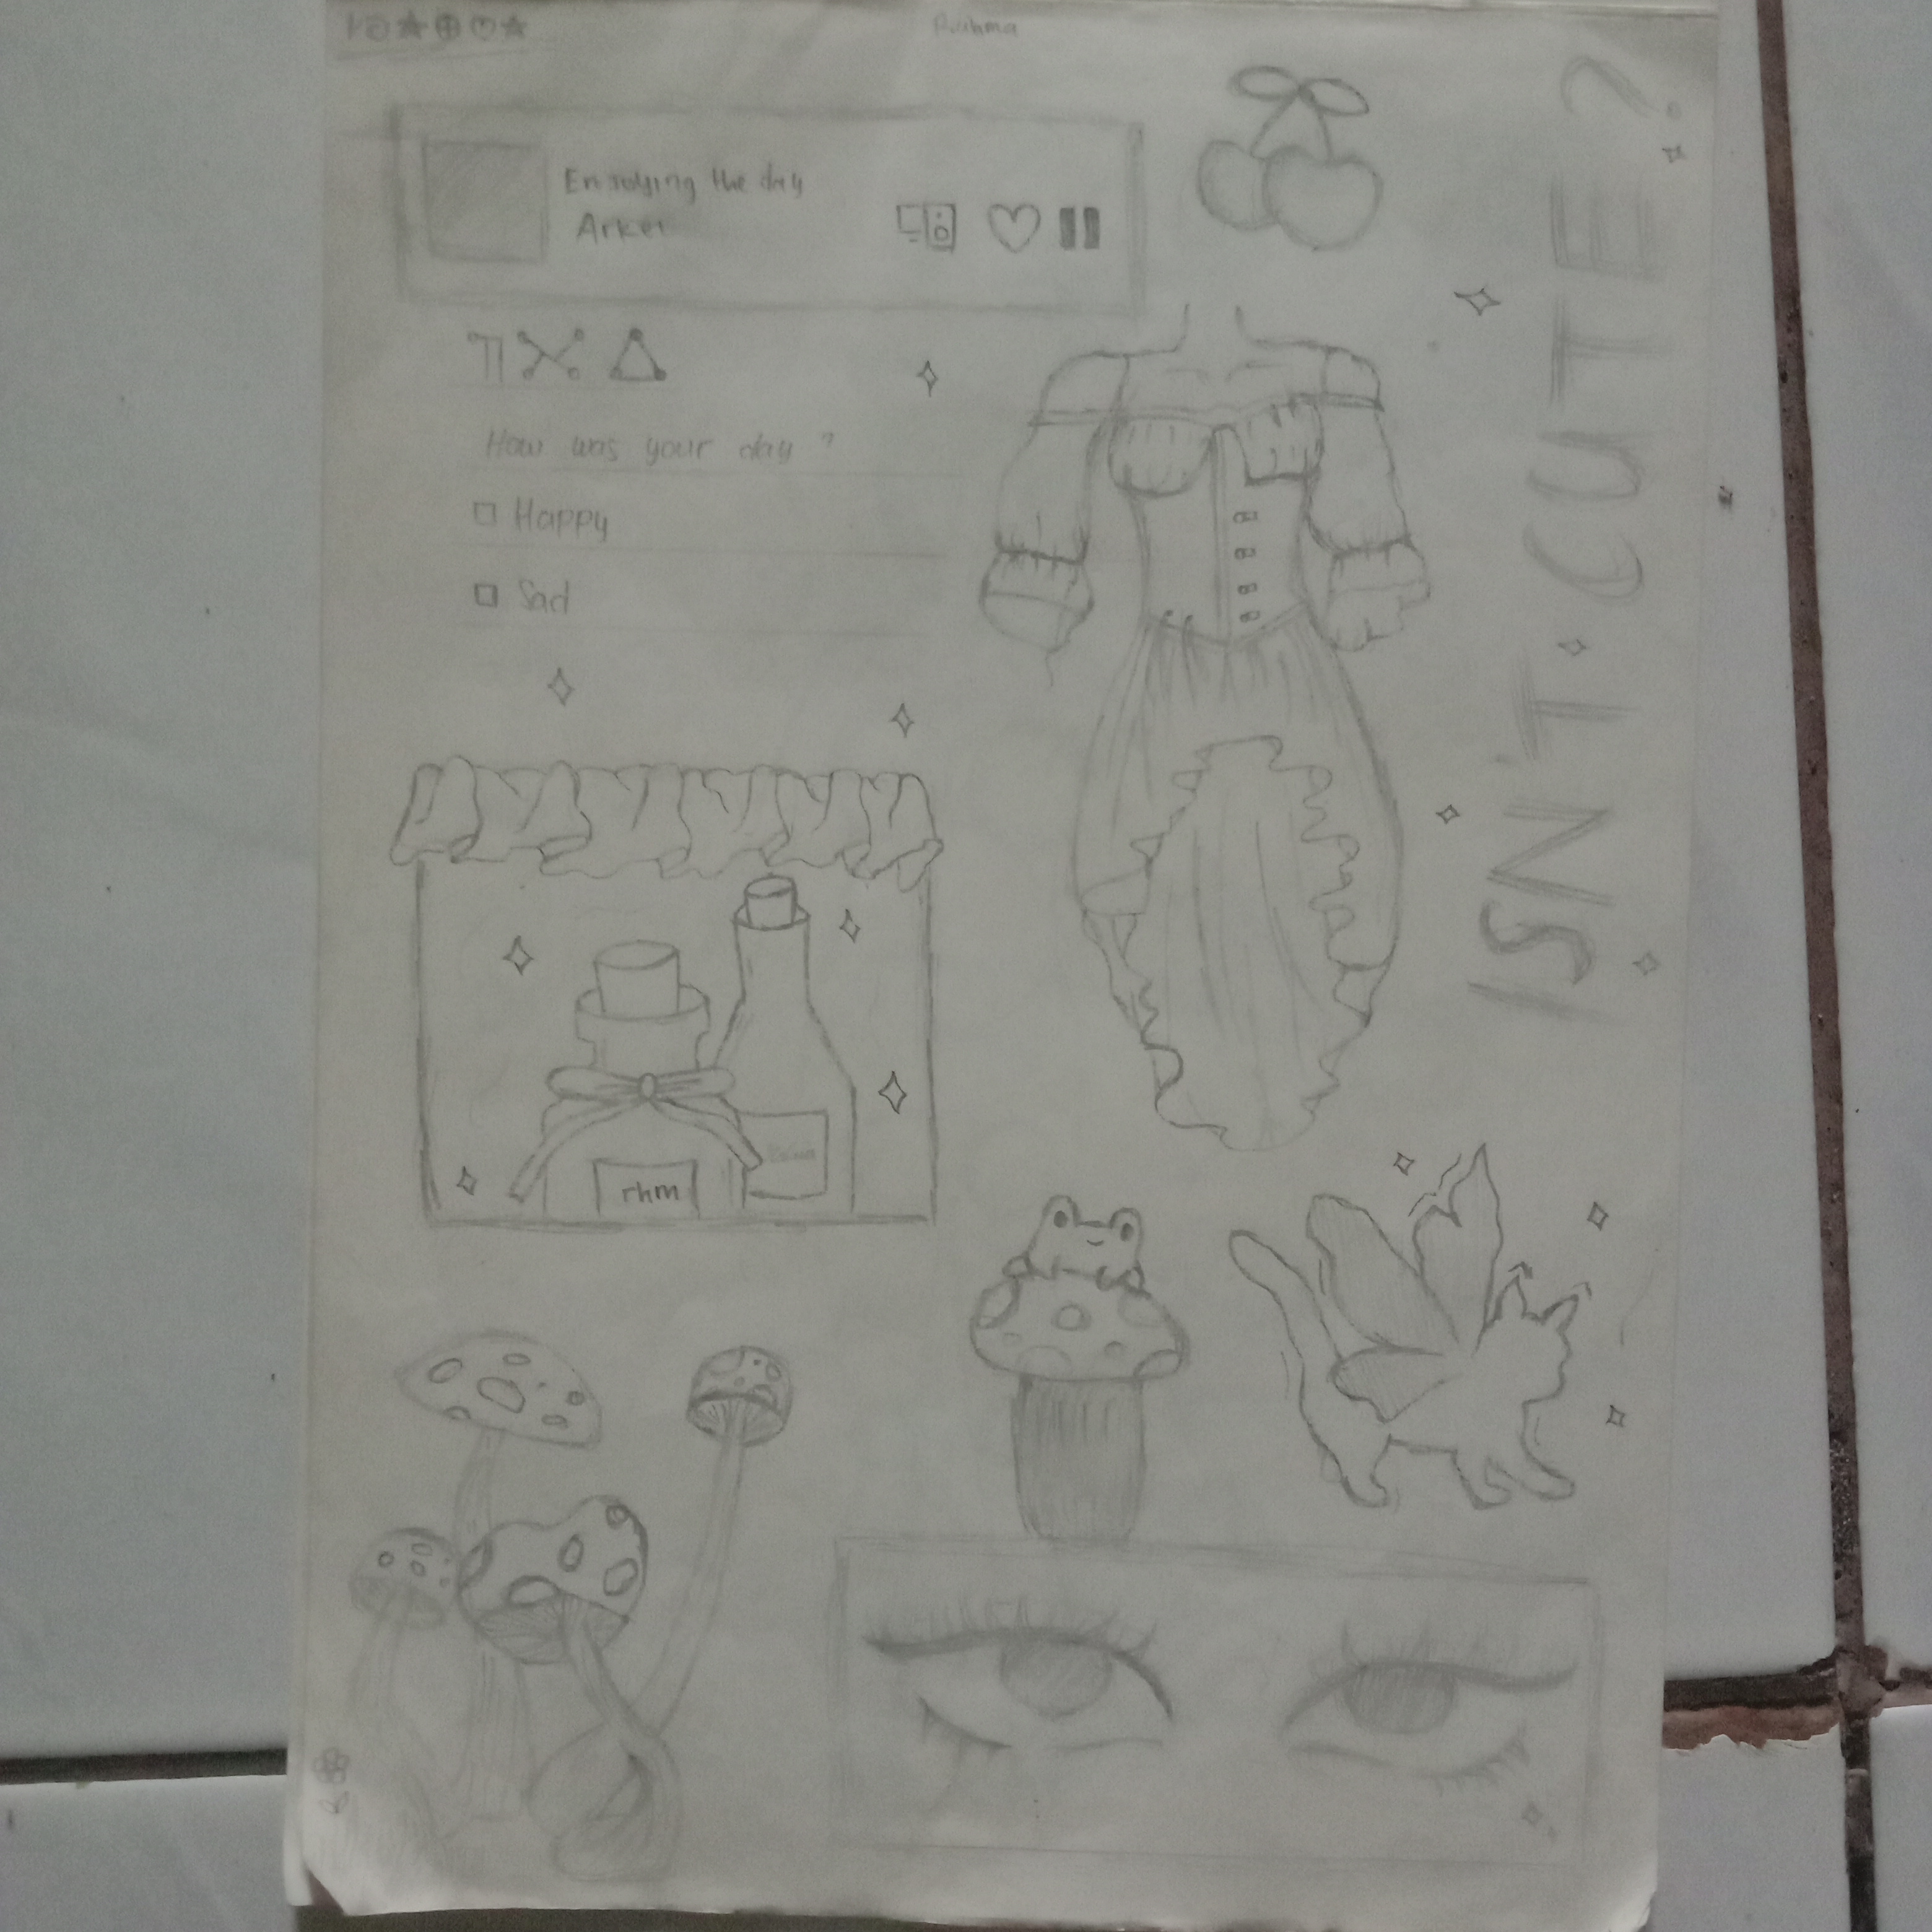 Enjoying the day
How was your day ?
Happy
Sad
rhm
ISN'T CUTE?